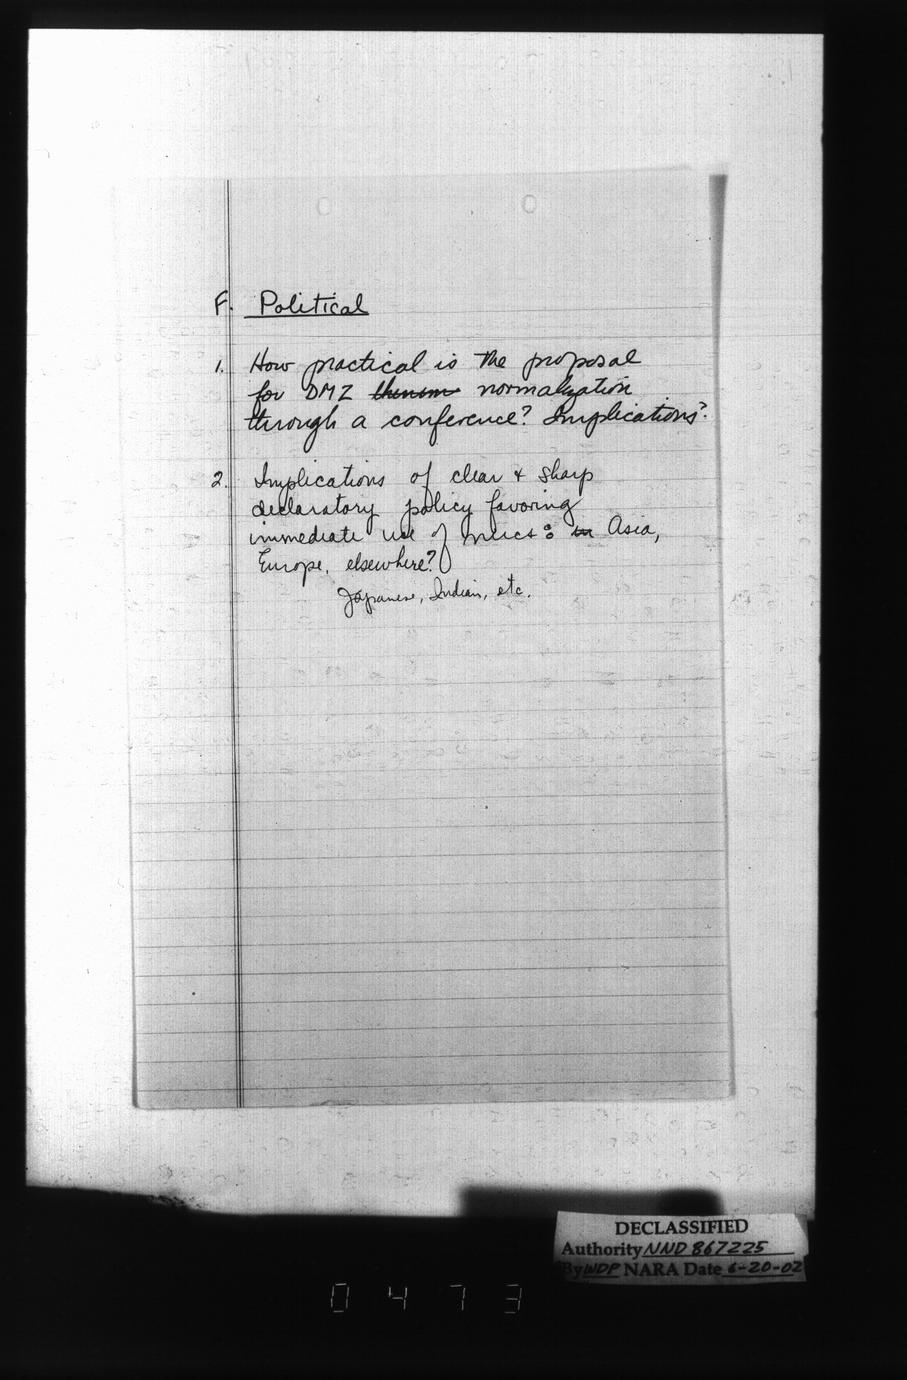 F. Political
1. How practical is the proposal
for DMZ normalization
through a conference? Implications?
2. Implications of clear + sharp
declaratory policy favoring
immediate use of nucs: in Asia,
Europe, elsewhere?
Japanese, Indian, etc.
DECLASSIFIED
Authority NND 867225
By WDP NARA Date 6-20-02
0473